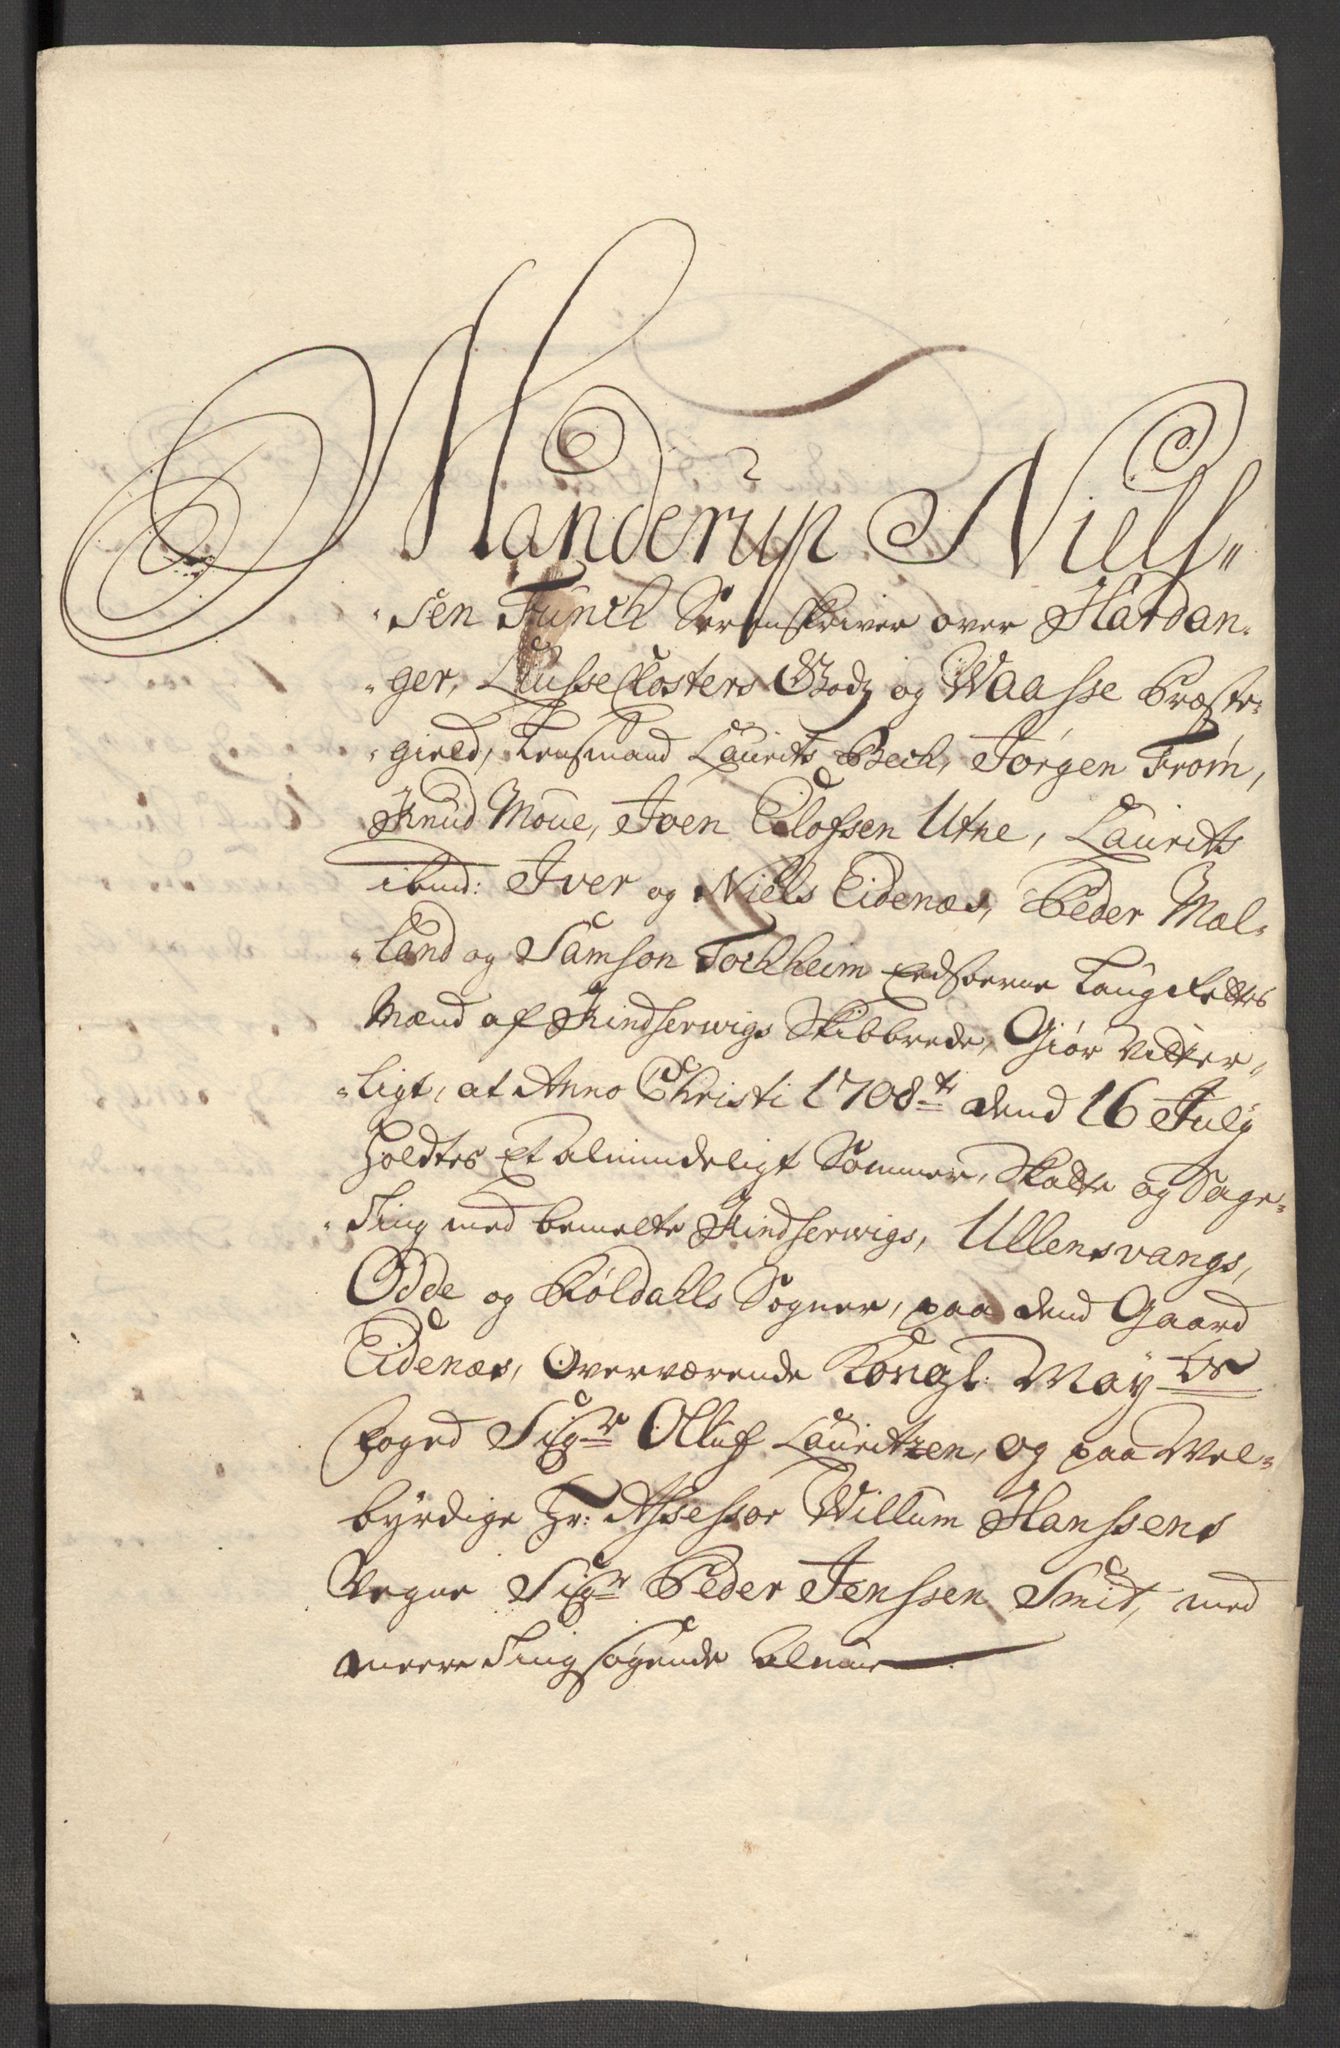 Manderup Niels-
-sen Funch Sorenskriver over Hardan-
-ger, LuusseClosters Godz og Waasse Præste-
-gield, Lensmand Laurits Bech, Jørgen From,
Knud Moue, Iven Olofsen Utne, Laurits
ibid: Iver og Niels Eidenæs, Peder Mal-
-land og Samson Tochheim Eedsoerne Laug Rettes
Mænd af Kindserwigs Skibbrede, Giør Vitter-
-ligt, at Anno Christi 1708te dend 16 July
holdtes Et almindeligt Sommer, Skatte og Sage-
-ting med bemelte Kindserwigs, Ullensvangs,
Odde og Røldahls Sogner, paa dend Gaard
Eidenæs, Overværende Kongl: Mayts
Foged Sigr Olluf Lauritzen, og paa Wel-
byrdige Hr: Assessor Willum Hanssens
Vegne Sigr Peder Jenssen Smit, med
meere Tingsøgende Almue